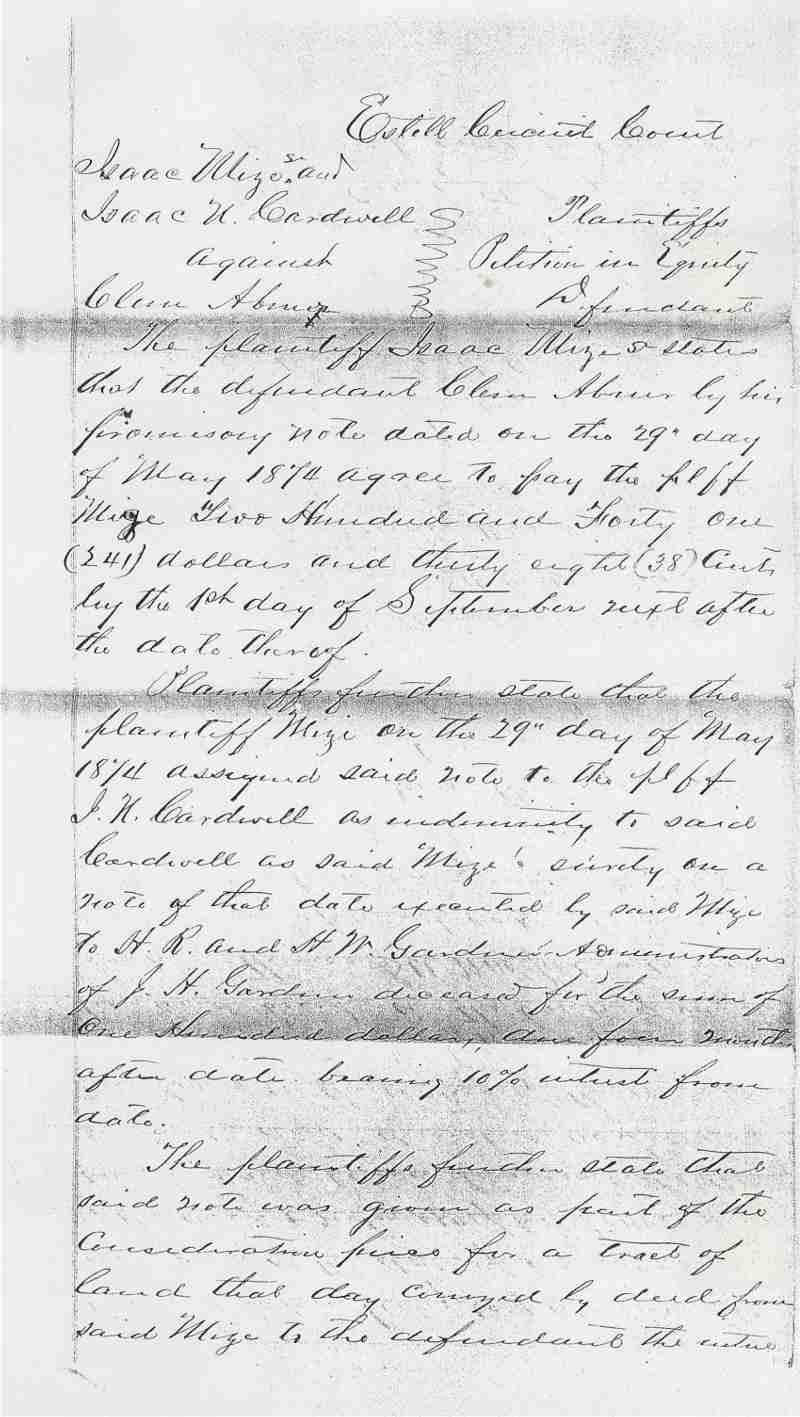 Estill Circuit Court
Isaac Mize Sr. and
Isaac N. Cardwell Plaintiffs
Against Petition in Equity
Clem Abner Defendant
The plaintiff Isaac Mize Sr states
that the defendant Clem Abner by his
promisory note dated on the 29" day
of May 1874 agree to pay the plff
Mize Two Hundred and Forty one
(241) dollars and thirty eight (38) Cents
by the 1st day of September next after
the date thereof.
Plaintiffs further state that the
plaintiff Mize on the 29" day of May
1874 assigned said note to the plff
I. N. Cardwell as indemnity to said
Cardwell as said Mize's surety on a
note of that date executed by said Mize
to H. R. and H. W. Gardner Administrators
of J. H. Gardner deceased for the sum of
One Hundred dollars, due four months
after date bearing 10% interest from
date.
The plaintiffs further state that
said note was given as part of the
Consideration price for a tract of
land that day conveyed by deed from
said Mize to the defendant the